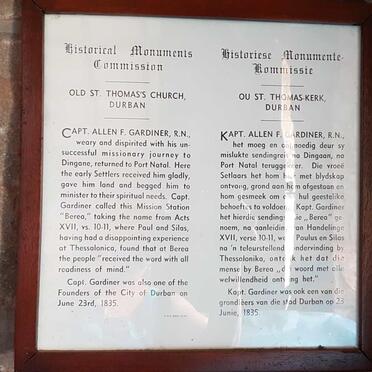 Historical Monuments
Commission
OLD ST. THOMAS'S CHURCH,
DURBAN
CAPT. ALLEN F. GARDINER, R.N.,
weary and dispirited with his un-
successful missionary journey to
Dingane, returned to Port Natal. Here
the early Settlers received him gladly,
gave him land and begged him to
minister to their spiritual needs. Capt.
Gardiner called this Mission Station
"Berea," taking the name from Acts
XVII, vs. 10-11, where Paul and Silas,
having had a disappointing experience
at Thessalonica, found that at Berea
the people "received the word with all
readiness of mind."
Capt. Gardiner was also one of the
Founders of the City of Durban on
June 23rd, 1835.
Historiese Monumente-
Kommissie
OU ST. THOMAS-KERK,
DURBAN
KAPT. ALLEN F. GARDINER, R.N.,
het moeg en deur sy
mislukte sendingreis na Dingaan, na
Port Natal teruggekeer. Die vroeë
Setlaars het hom met blydskap
ontvang, grond aan hom afgestaan en
hom gesmeek om hul geestelike
behoeftes te voldoen. Kapt. Gardiner
het hierdie „Berea" ge-
noem, na aanleiding van Handelinge
XVII, verse 10-11, Paulus en Silas
na 'n teleurstellende ondervinding by
Thessalonika, ontdek het dat die
mense by Berea „die woord met alle
welwillendheid ontvang het."
Kapt. Gardiner was ook een van die
grondlêers van die stad Durban op 23
Junie, 1835.